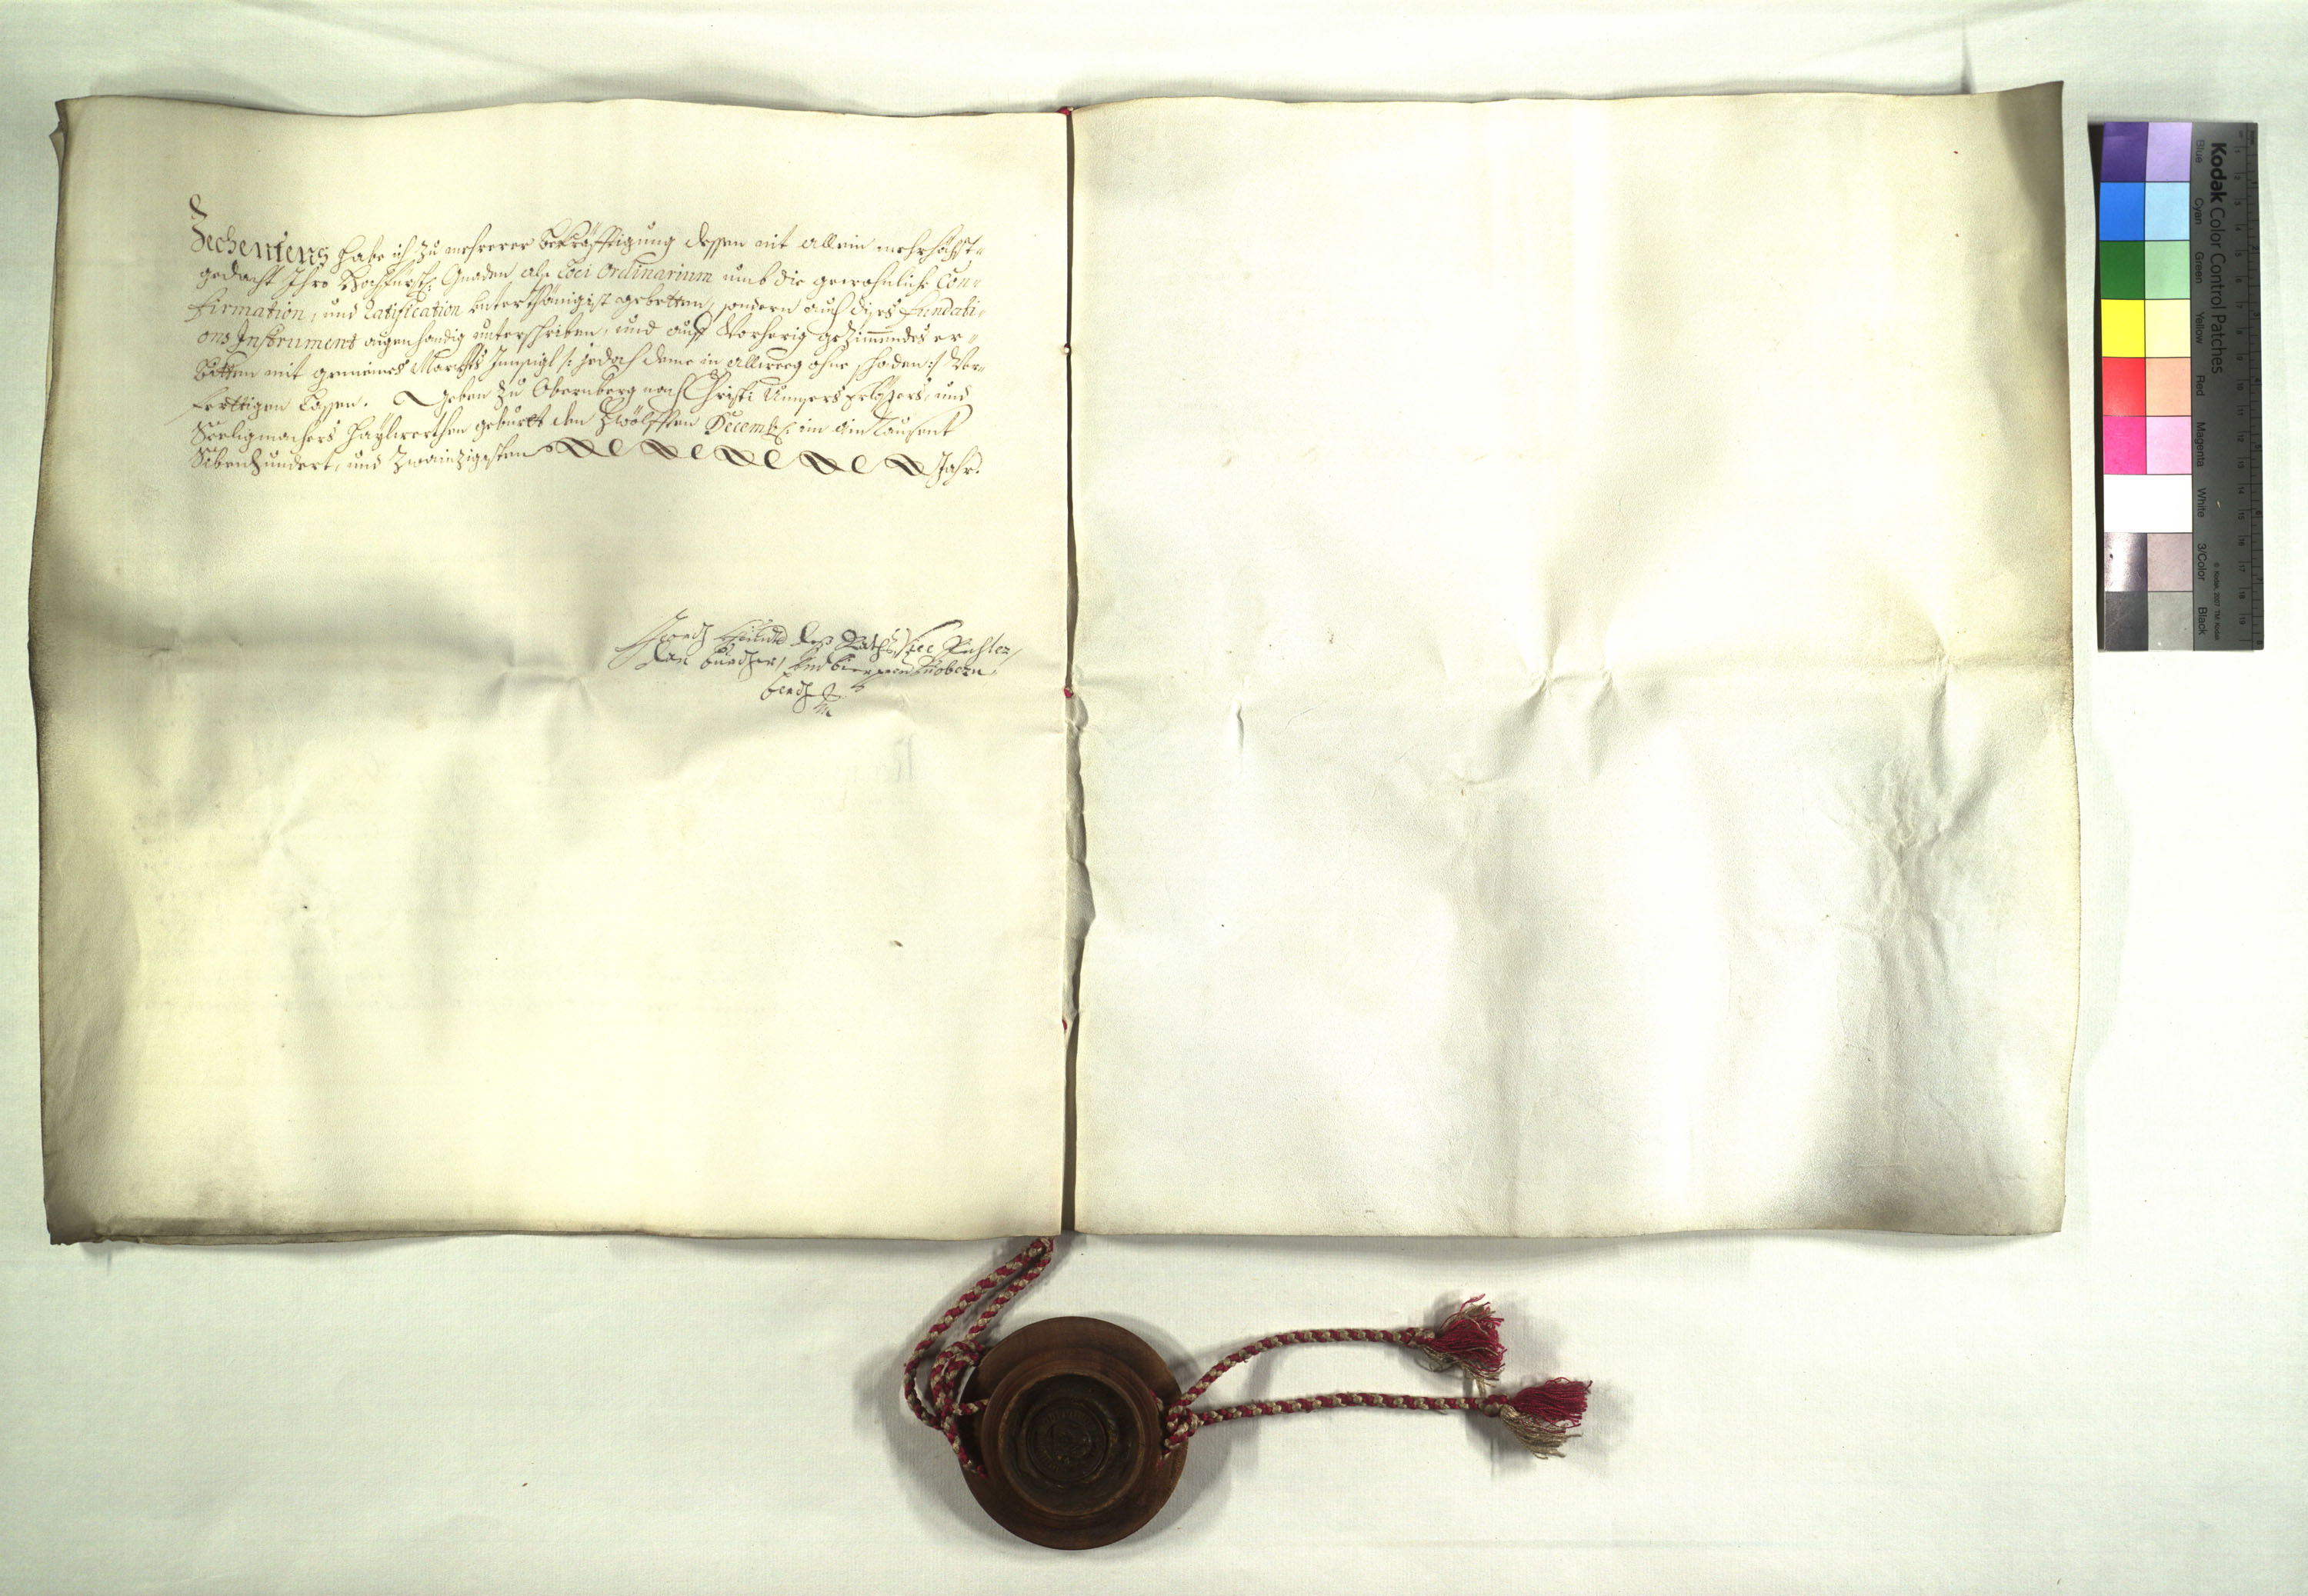 Zechentens habe ich zu mehrerer Bekräfftigung dessen nit allein mehrhöchst-
gedacht Ihro Hochfürstl: Gnaden als Loci Ordinarium umb die gewohnliche Con-
firmation, und Ratification unterthänigist gebetten, sondern auch dises Fundati-
ons Instrument aigenhandig unterschriben, und auff Vorherig gezimmendes er-
bitten mit gemaines Marckhts Innsigl /: jedoch deme in allweeg ohne schaden :/ Ver-
ferttigen lassen. Geben zu Obernberg nach Christi Unnsers Erlösers, und
Seeligmachers haylwerthen geburtt den Zwölfften Decembr: im ain Tausent
Sibenhundert, und Zwainzigisten Jahr.
des Raths Vice Richter,
und
Kodak Color Control Patches
Blue Cyan Green Yellow Red Magenta White 3/Color Black
© Kodak, 2007 TM: Kodak